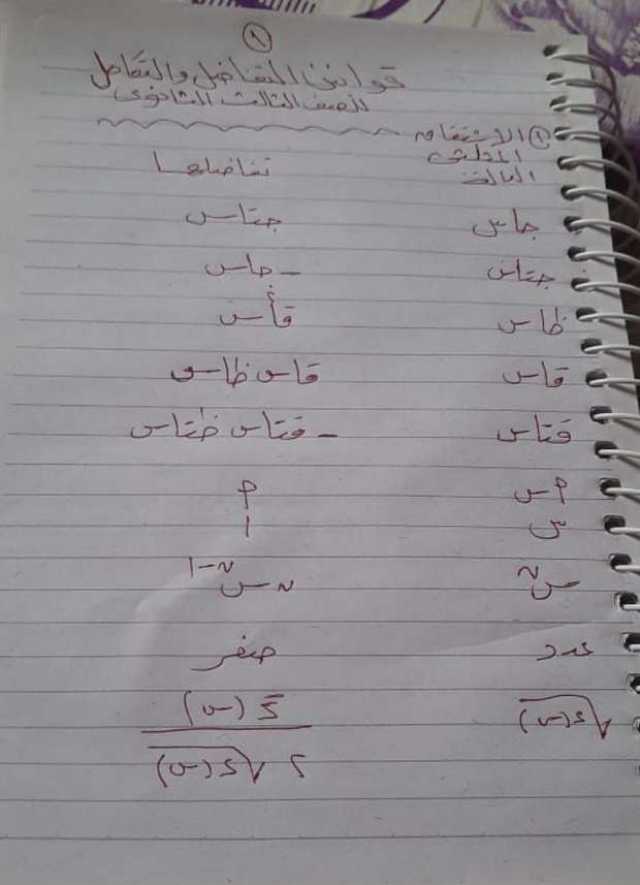 ١
قوانين التفاضل والتكامل
الصف الثالث الثانوى
١) الاشتقاق
الدالة تفاضلها
جاس جتاس
جتاس - جاس
ظاس قا٢س
قاس قاس ظاس
قتاس - قتاس ظتاس
م س م
س ١
س^ن ن س^(ن-١)
عدد صفر
√د(س) د َ(س) / ٢√د(س)